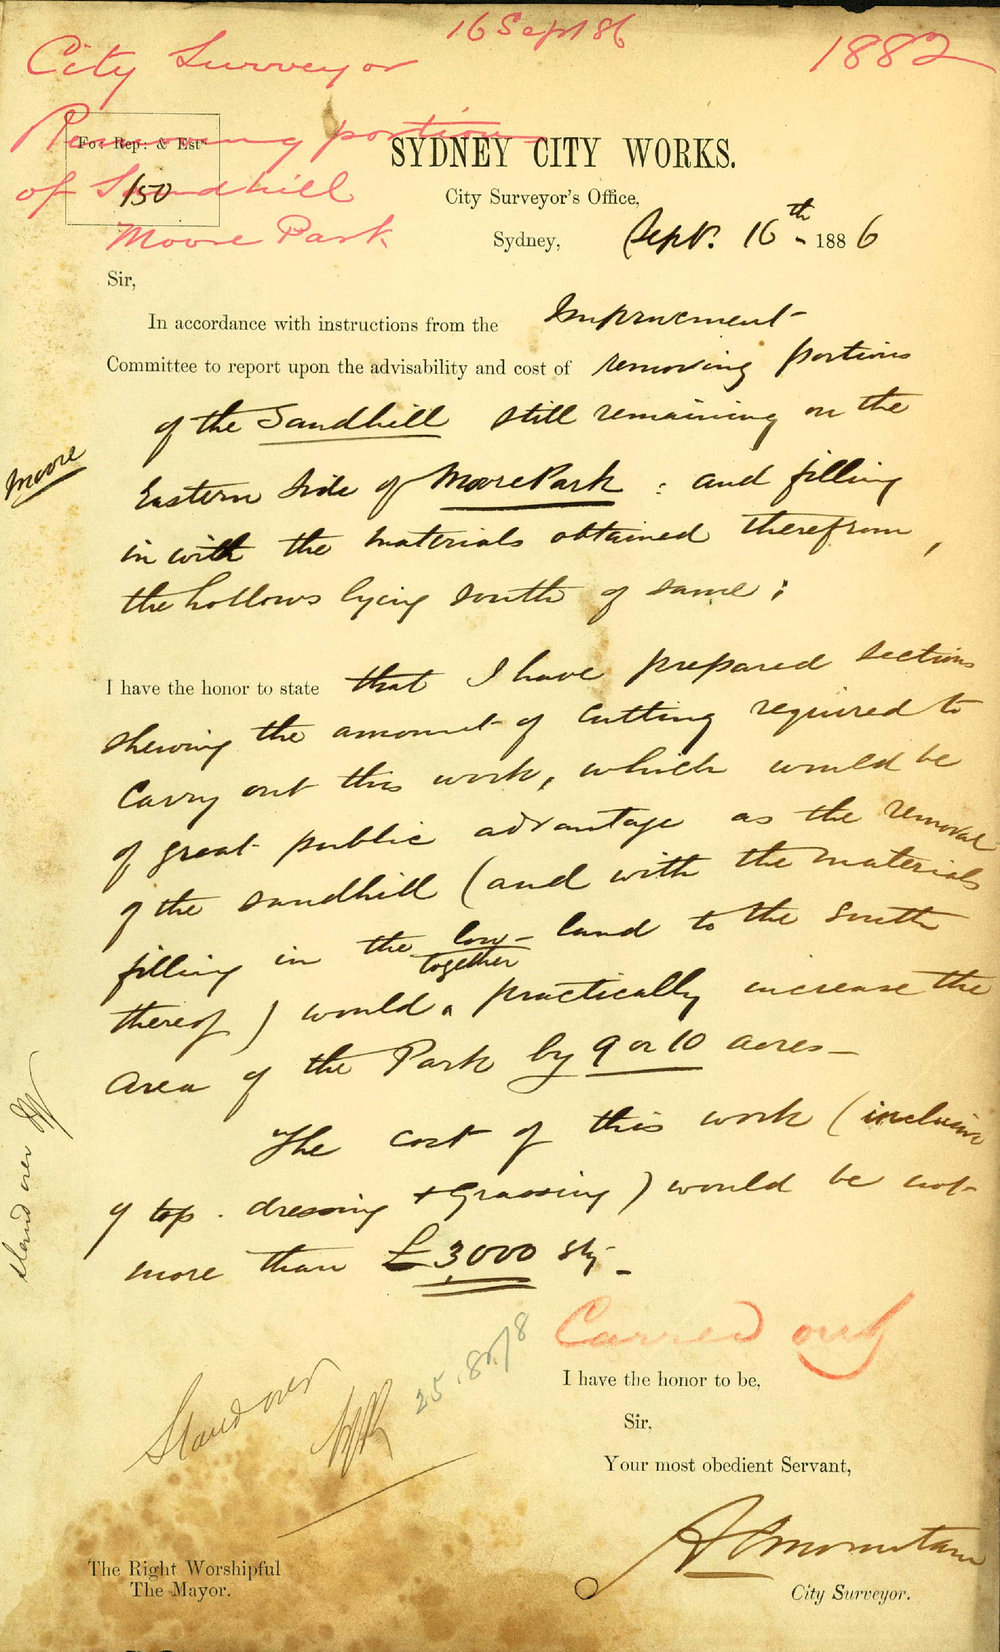 16 Sept 86
1882
City Surveyor
Removing portion
of Sandhill
Moore Park
For Rep: & Est
150
SYDNEY CITY WORKS.
City Surveyor's Office,
Sydney, Sept. 16th. 1886
Sir,
In accordance with instructions from the Improvement
Committee to report upon the advisability and cost of removing portions
of the Sandhill still remaining on the
Moore
Eastern Side of Moore Park : and filling
in with the materials obtained therefrom,
the hollows lying south of same ;
I have the honor to state that I have prepared sections
shewing the amount of cutting required to
carry out this work, which would be
of great public advantage as the removal
of the sandhill (and with the materials
filling in the low-land to the south
together
thereof) would practically increase the
area of the Park by 9 or 10 acres—
The cost of this work (inclusive
of top-dressing & grassing) would be not
more than £3000 stg—
Stand over
Carried out
Stand over
I have the honor to be,
Sir,
Your most obedient Servant,
City Surveyor.
The Right Worshipful
The Mayor.